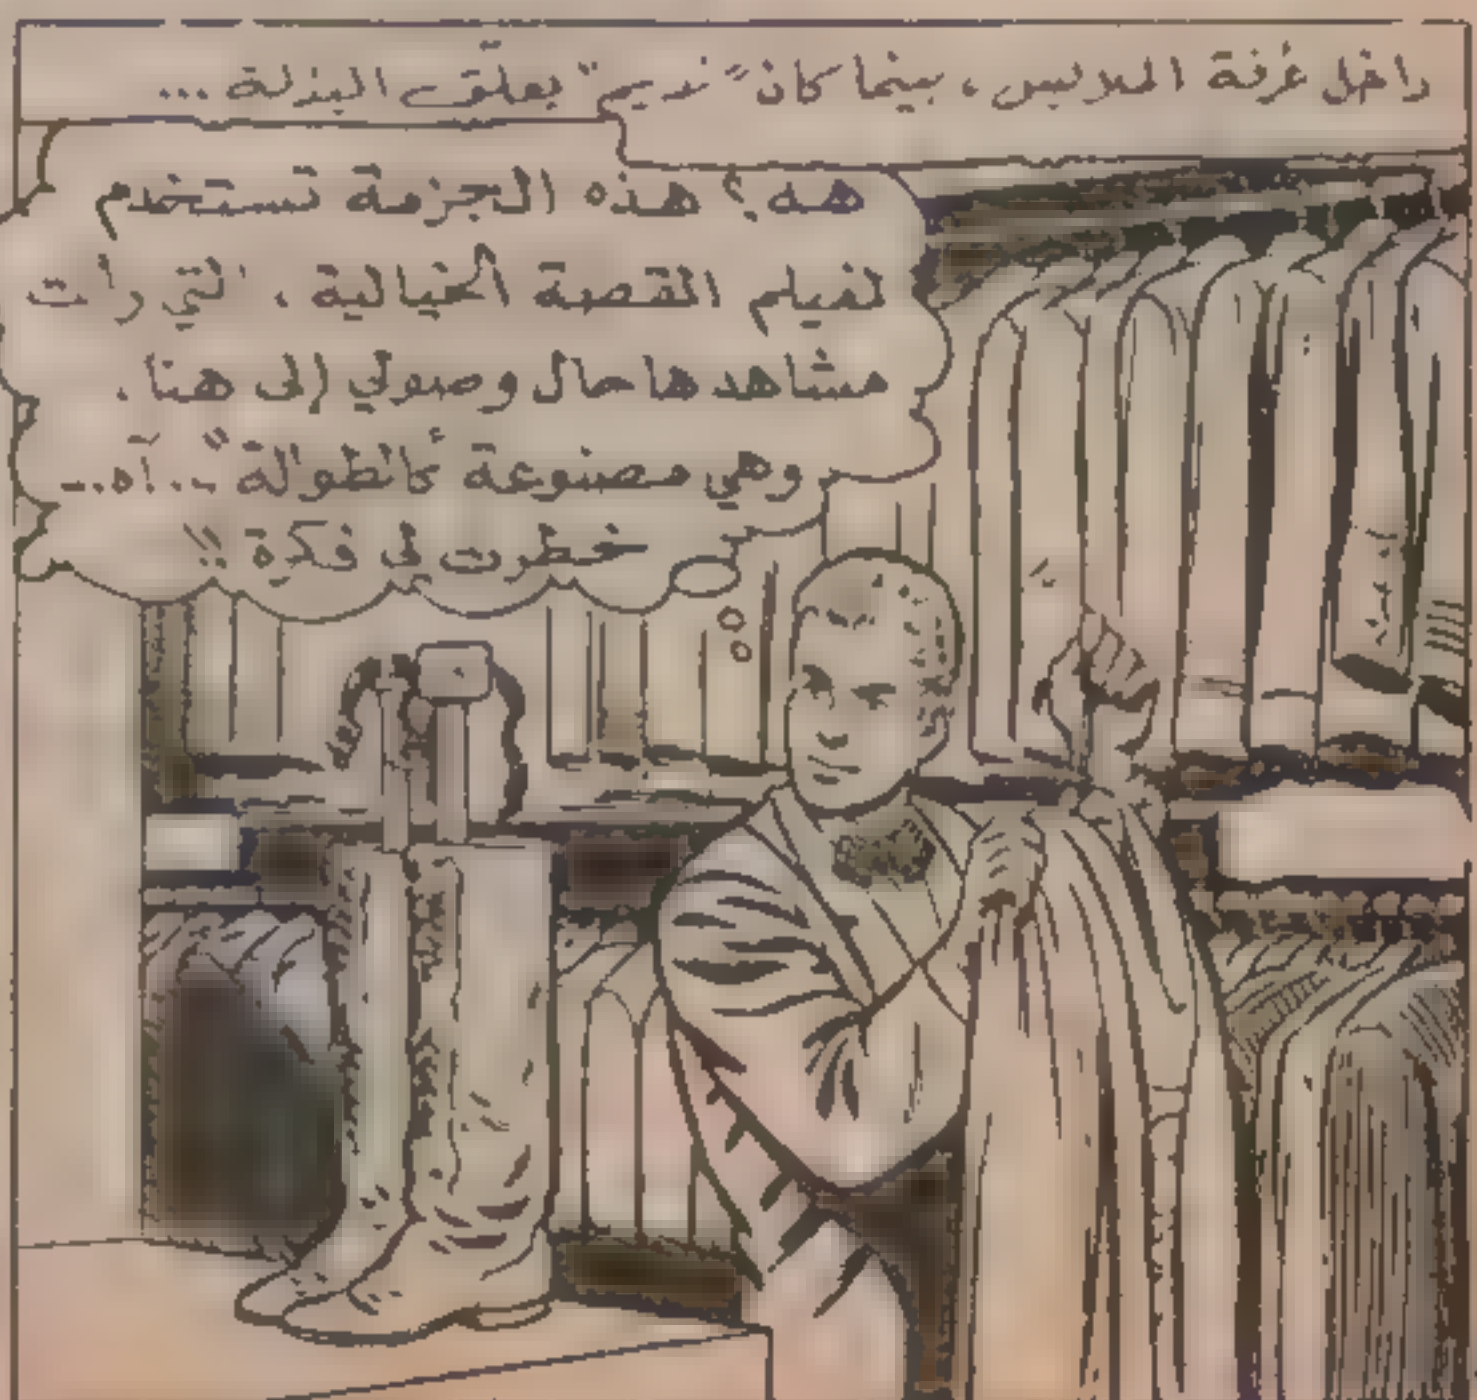 داخل غرفة الملابس، بينما كان "نديم" يعلّق البذلة ...
هه؟ هذه الجزمة تستخدم
لفيلم القصة الخيالية، التي رأيت
مشاهدها حال وصولي إلى هنا.
وهي مصنوعة كالطوالة"... آه...
خطرت لي فكرة !!